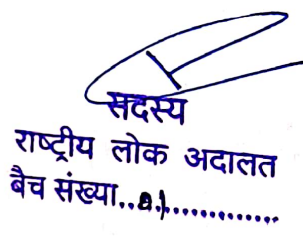 सदस्य
राष्ट्रीय लोक अदालत
बैच संख्या..01..............